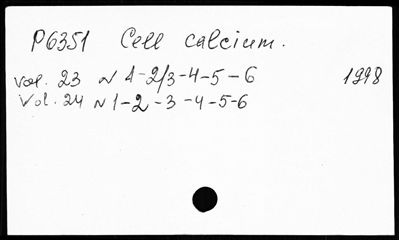 P6351 Cell calcium.
Vol. 23 N 1-2/3-4-5-6 1998
Vol. 24 N 1-2-3-4-5-6